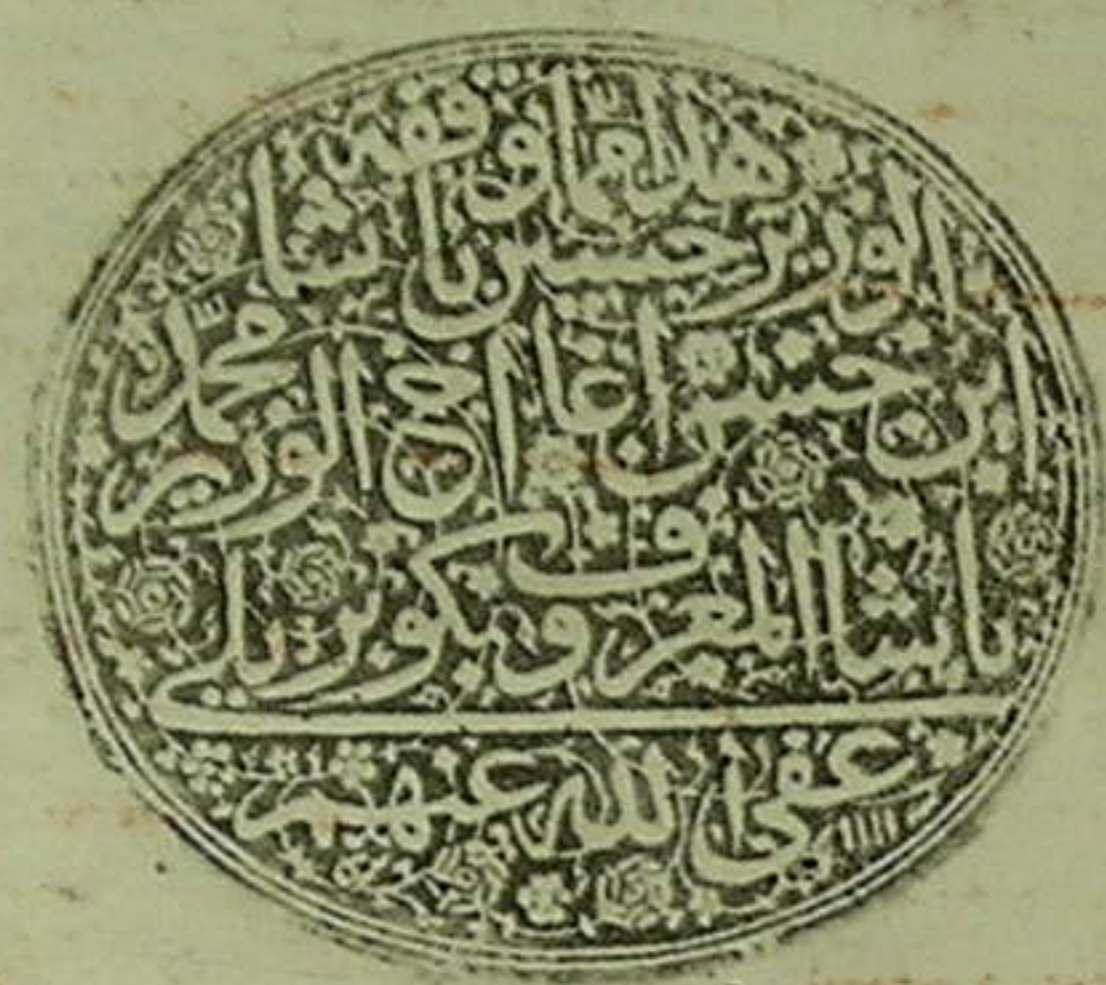 هذا مما وقفه
الوزير حسين باشا
ابن حسن اغا اخي الوزير محمد
باشا المعروف بكوبريلي
عفى الله عنهم
١١١١